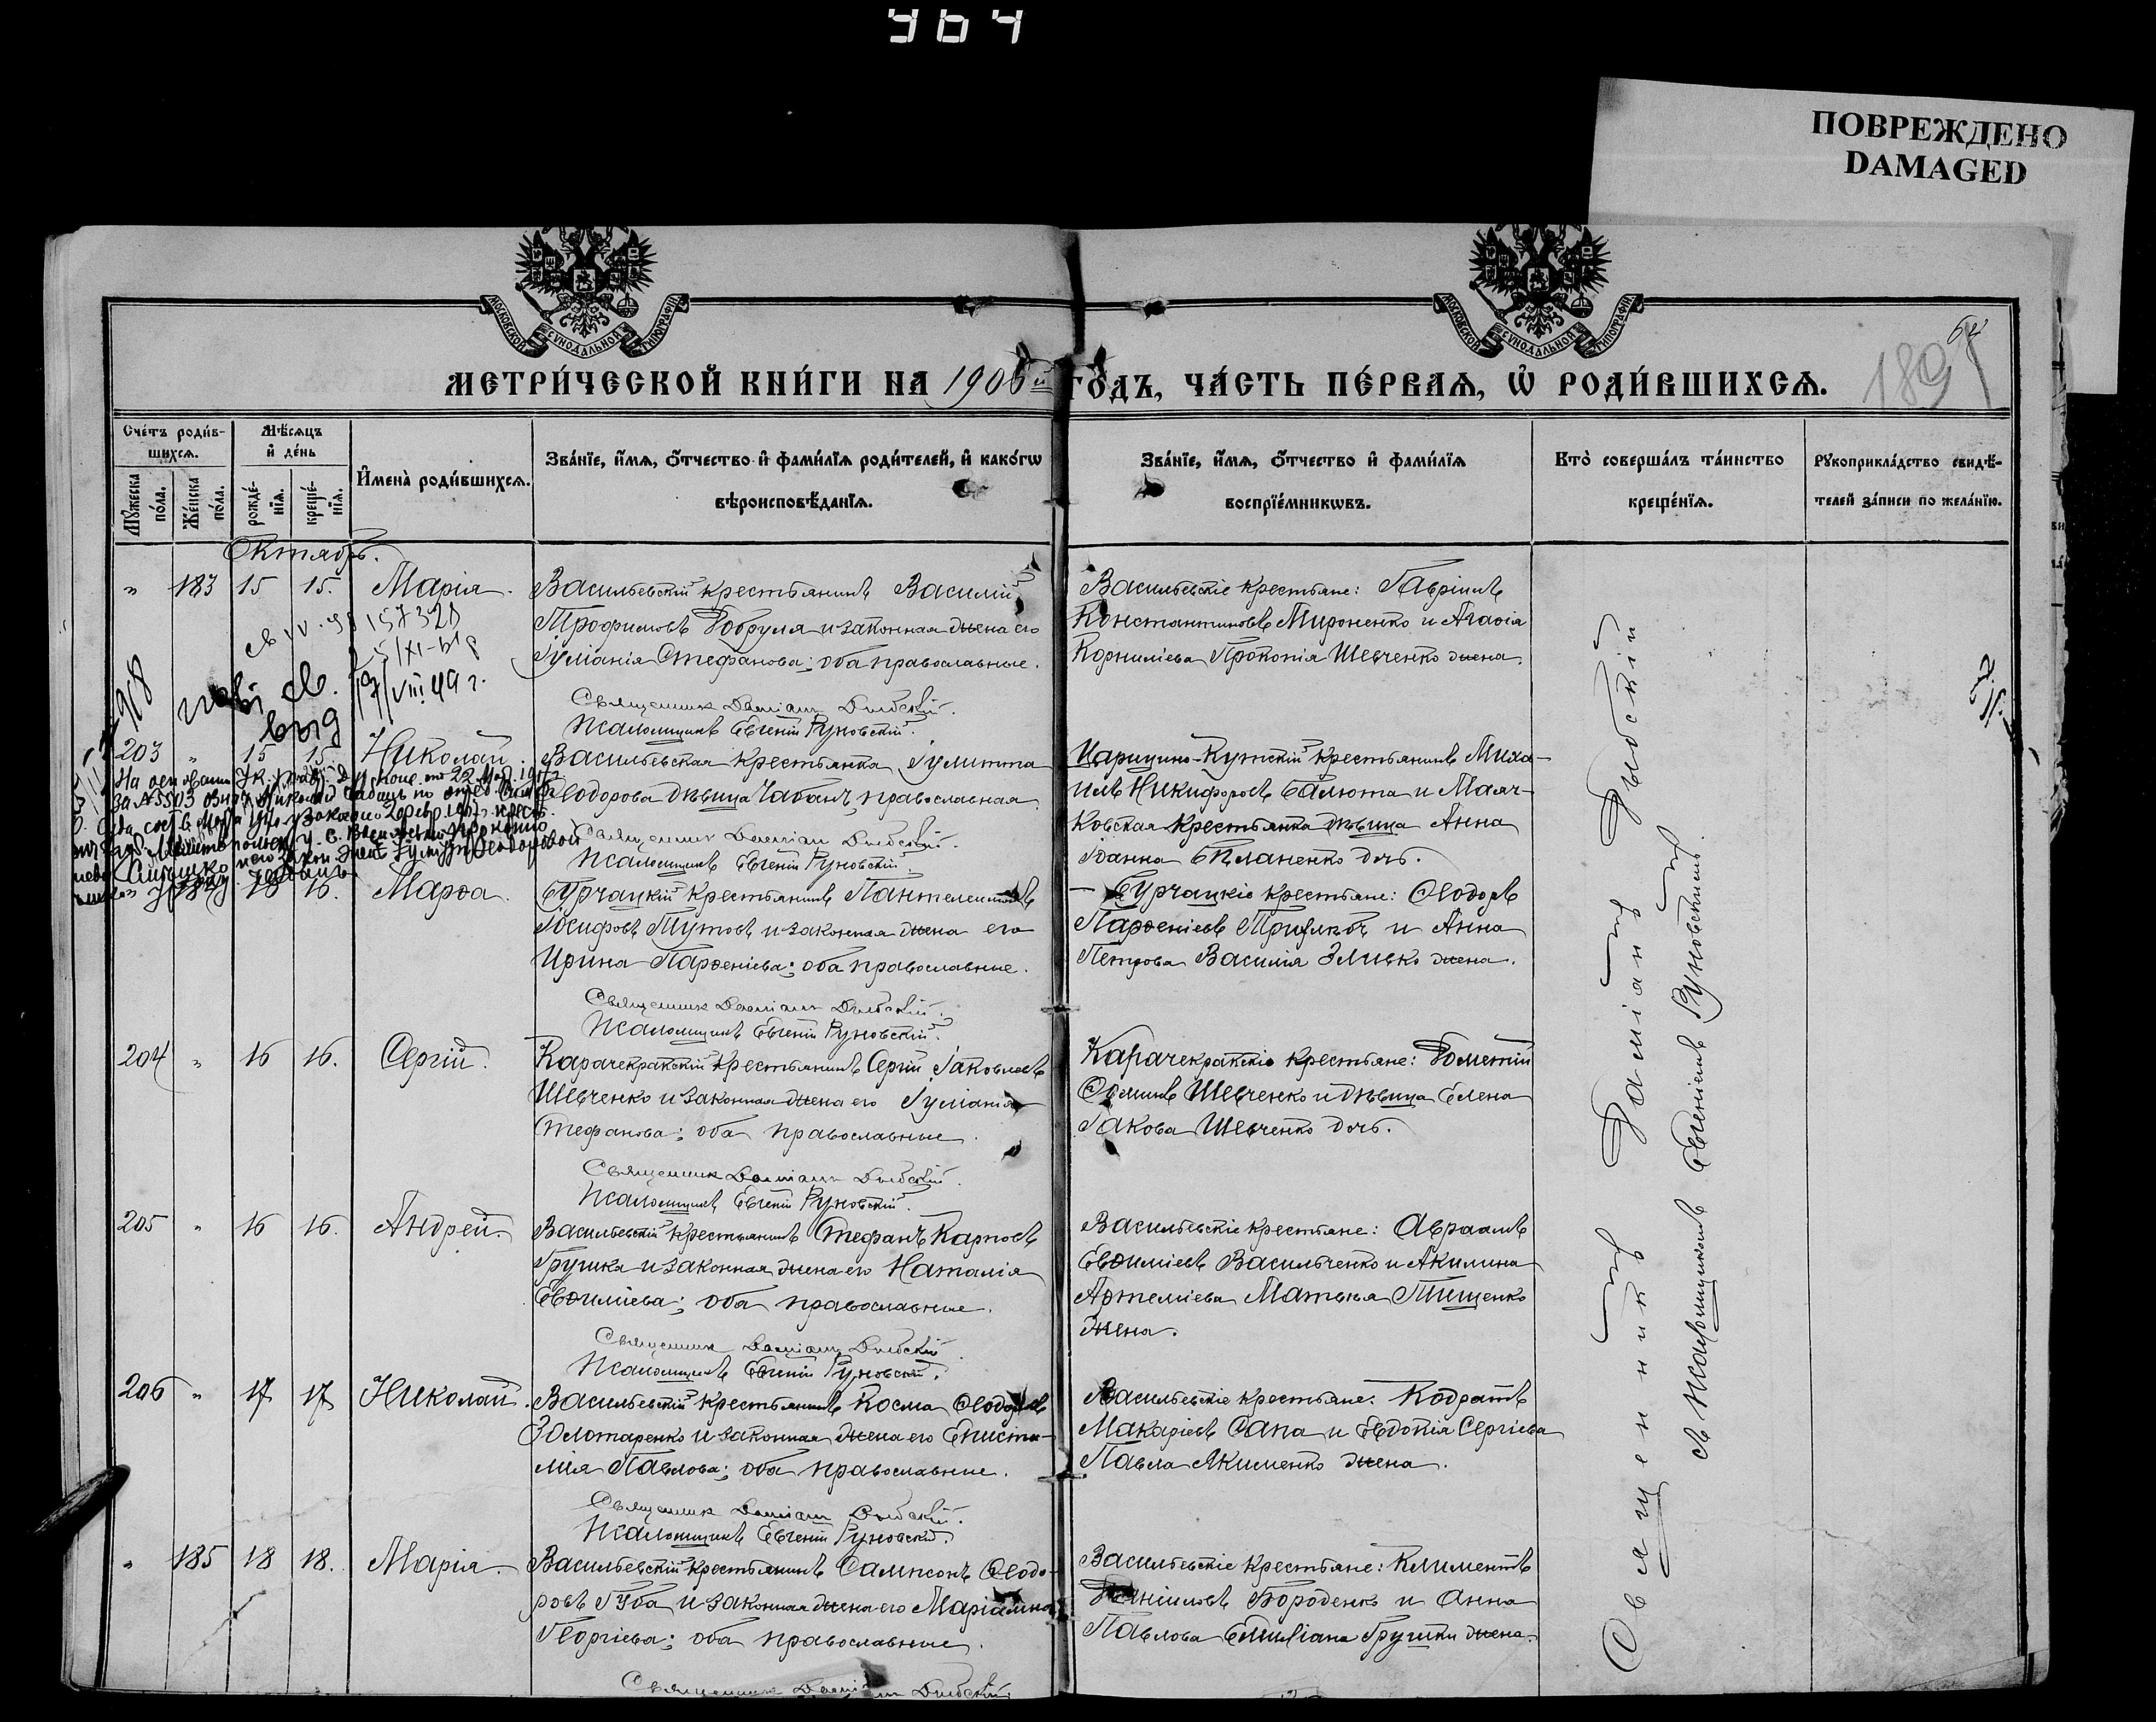 964
ПОВРЕЖДЕНО
DAMAGED
МОСКОВСКОЙ СУНОДАЛЬНОЙ ТИПОГРАФІИ
МОСКОВСКОЙ СУНОДАЛЬНОЙ ТИПОГРАФІИ
64
189
МЕТРИ́ЧЕСКОЙ КНИ́ГИ НА 1906й ГО́ДЪ, ЧА́СТЬ ПЕ́РВАѦ, Ѡ҆ РОДИ́ВШИХСѦ.
Сче́тъ роди́в-
шихсѧ.
Мꙋ́жеска по́ла.
Же́нска по́ла.
Мѣ́сѧцъ
и҆ де́нь
рожде́-
нїѧ.
креще́-
нїѧ.
И҆мена̀ роди́вшихсѧ.
Зва́нїе, и҆́мѧ, ѻ҆́тчество и҆ фами́лїѧ роди́телей, и҆ како́гѡ
вѣроисповѣ́данїѧ.
Зва́нїе, и҆́мѧ, ѻ҆́тчество и҆ фами́лїѧ
воспрїе́мникѡвъ.
Кто̀ соверша́лъ та́инство
креще́нїѧ.
Рꙋкоприкла́дство свидѣ́-
телей за́писи по жела́нїю.
Октябрь.
" 183 15 15. Марія.
Васильевскій крестьянинъ Василій
Трофимовъ Добруля и законная жена его
Іуліанія Стефанова; оба православные.
Священник Дамиан Дыбский.
Псаломщикъ Евгеній Руновскій.
Васильевскіе крестьяне: Гавріилъ
Константиновъ Мироненко и Агафія
Корниліева Прокопія Шевченко жена.
157320
VIII 49 г.
203 " 15 15 Николай
Васильевская крестьянка Іулитта
Ѳеодорова дѣвица Чабанъ, православная.
Священник Дамиан Дыбский.
Псаломщикъ Евгеній Руновскій.
Царицыно-Кутскій крестьянинъ Миха-
илъ Никифоровъ Балюта и Маяч-
ковская крестьянка дѣвица Анна
Іоанна Биланенко дочь.
На основании
18 16. Марѳа.
Бурчацкій крестьянинъ Пантелеимонъ
Іосифовъ Тутовъ и законная жена его
Ирина Парѳеніева; оба православные.
Священник Дамиан Дыбский.
Псаломщикъ Евгеній Руновскій.
— Бурчацкіе крестьяне: Ѳеодоръ
Парѳеніевъ и Анна
Петрова Василія Зливко жена.
204 " 16 16. Сергій.
Карачекракскій крестьянинъ Сергій Іаковлевъ
Шевченко и законная жена его Іуліанія
Стефанова; оба православные.
Священник Дамиан Дыбский.
Псаломщикъ Евгеній Руновскій.
Карачекракскіе крестьяне: Дометій
Ѳоминъ Шевченко и дѣвица Елена
Іакова Шевченко дочь.
205 " 16 16. Андрей.
Васильевскій крестьянинъ Стефанъ Карповъ
Грушка и законная жена его Наталія
Евѳиміева; оба православные.
Священник Дамиан Дыбский.
Псаломщикъ Евгеній Руновскій.
Васильевскіе крестьяне: Авраамъ
Евѳиміевъ Васильченко и Акилина
Артеміева Матвѣя Тищенко
жена.
206 " 17 17 Николай.
Васильевскій крестьянинъ Косма Ѳеодоровъ
Золотаренко и законная жена его Еписти-
мія Павлова; оба православные.
Священник Дамиан Дыбский.
Псаломщикъ Евгеній Руновскій.
Васильевскіе крестьяне: Кодратъ
Макаріевъ Сапа и Евдокія Сергіева
Павла Якименко жена.
" 185 18 18. Марія.
Васильевскій крестьянинъ Сампсонъ Ѳеодо-
ровъ Губа и законная жена его Маріамна
Георгіева; оба православные.
Священник Дамиан Дыбский
Васильевскіе крестьяне: Климентъ
Даніиловъ Бороденко и Анна
Павлова Емиліана Грушки жена.
Священникъ Даміанъ Дыбскій
съ псаломщикомъ Евгеніемъ Руновскимъ.